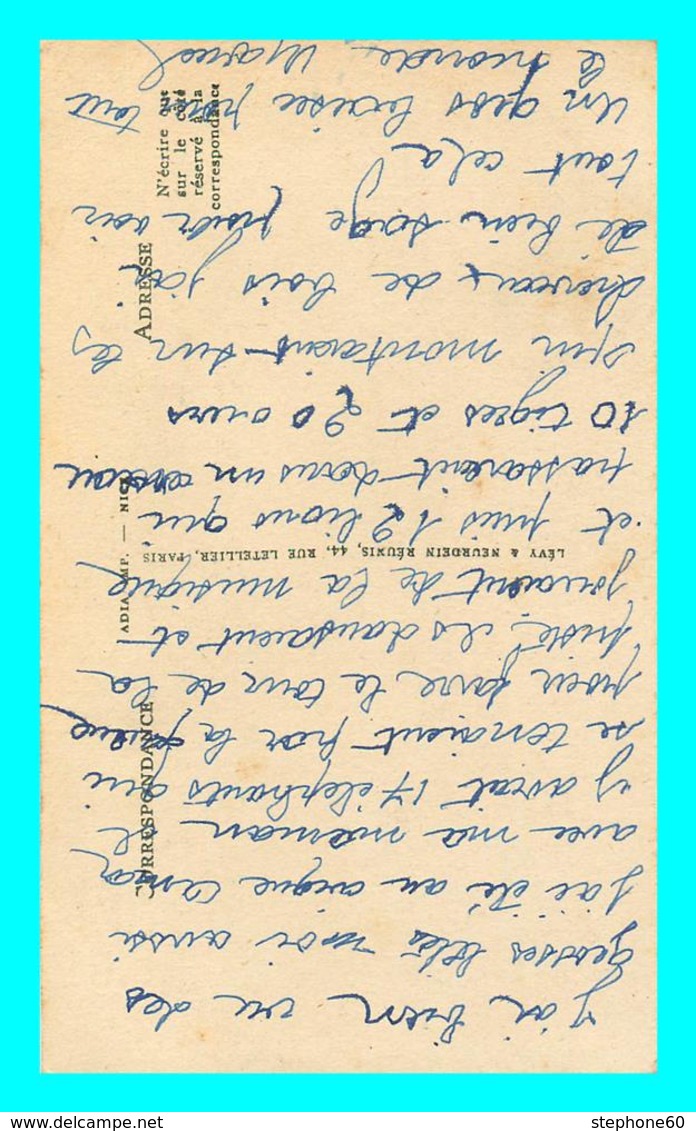 J'ai bien vu des
grosses bêtes moi aussi
j'ai été au cirque
avec ma maman il
y avait 17 éléphants qui
se tenaient par la queue
pour faire le tour de la
piste, ils dansaient et
jouaient de la musique
et puis 12 lions qui
passaient dans un
10 tigres et 20 ours
qui montaient sur les
chevaux de bois j'ai
de bien sage pour voir
tout cela
Un gros baiser pour tout
le monde. Marcel
CORRESPONDANCE
ADRESSE
N'écrire que
sur le côté
réservé à la
correspondance
ADIA IMP. — NICE
LÉVY & NEURDEIN RÉUNIS, 44, RUE LETELLIER, PARIS
stephone60